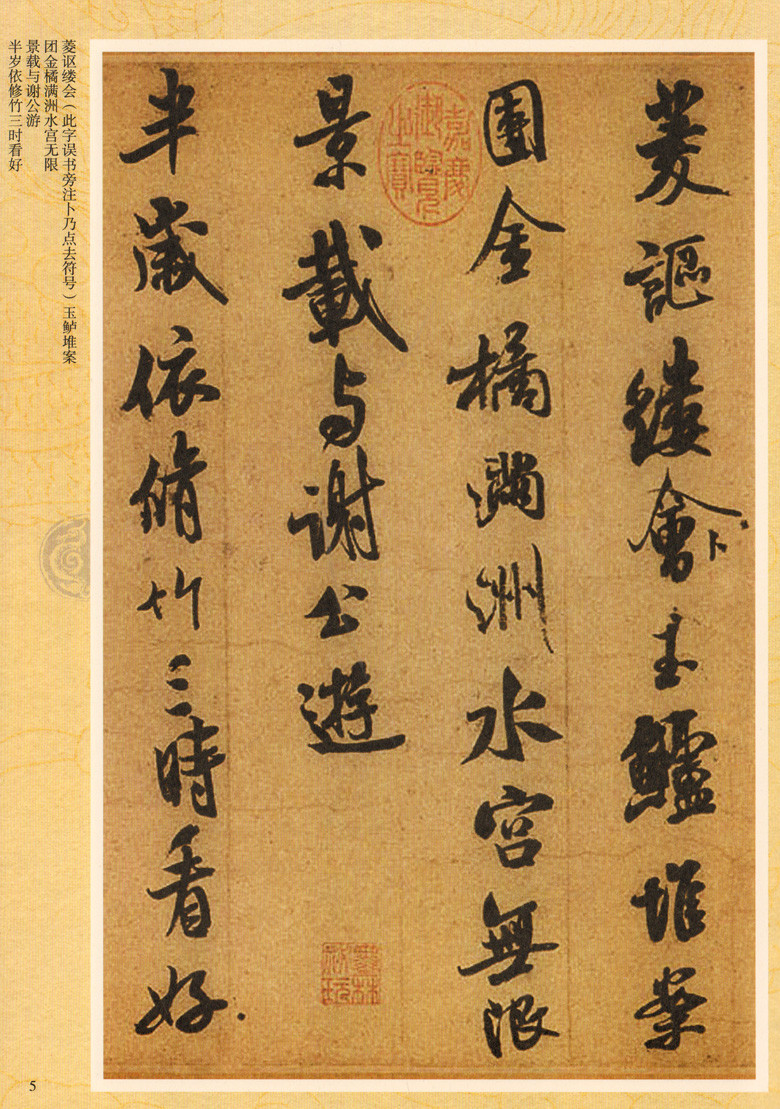 菱讴缕会（此字误书旁注卜乃点去符号）玉鲈堆案
团金橘满洲水宫无限
景载与谢公游
半岁依修竹三时看好
菱謳縷會卜玉鱸堆案
團金橘滿洲水宮無限
景載与謝公遊
半歲依脩竹三時看好
嘉慶
御覽
之寶
5